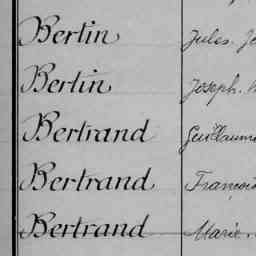 Bertin Jules. Je
Bertin Joseph.
Bertrand Guillaume
Bertrand François
Bertrand Marie.